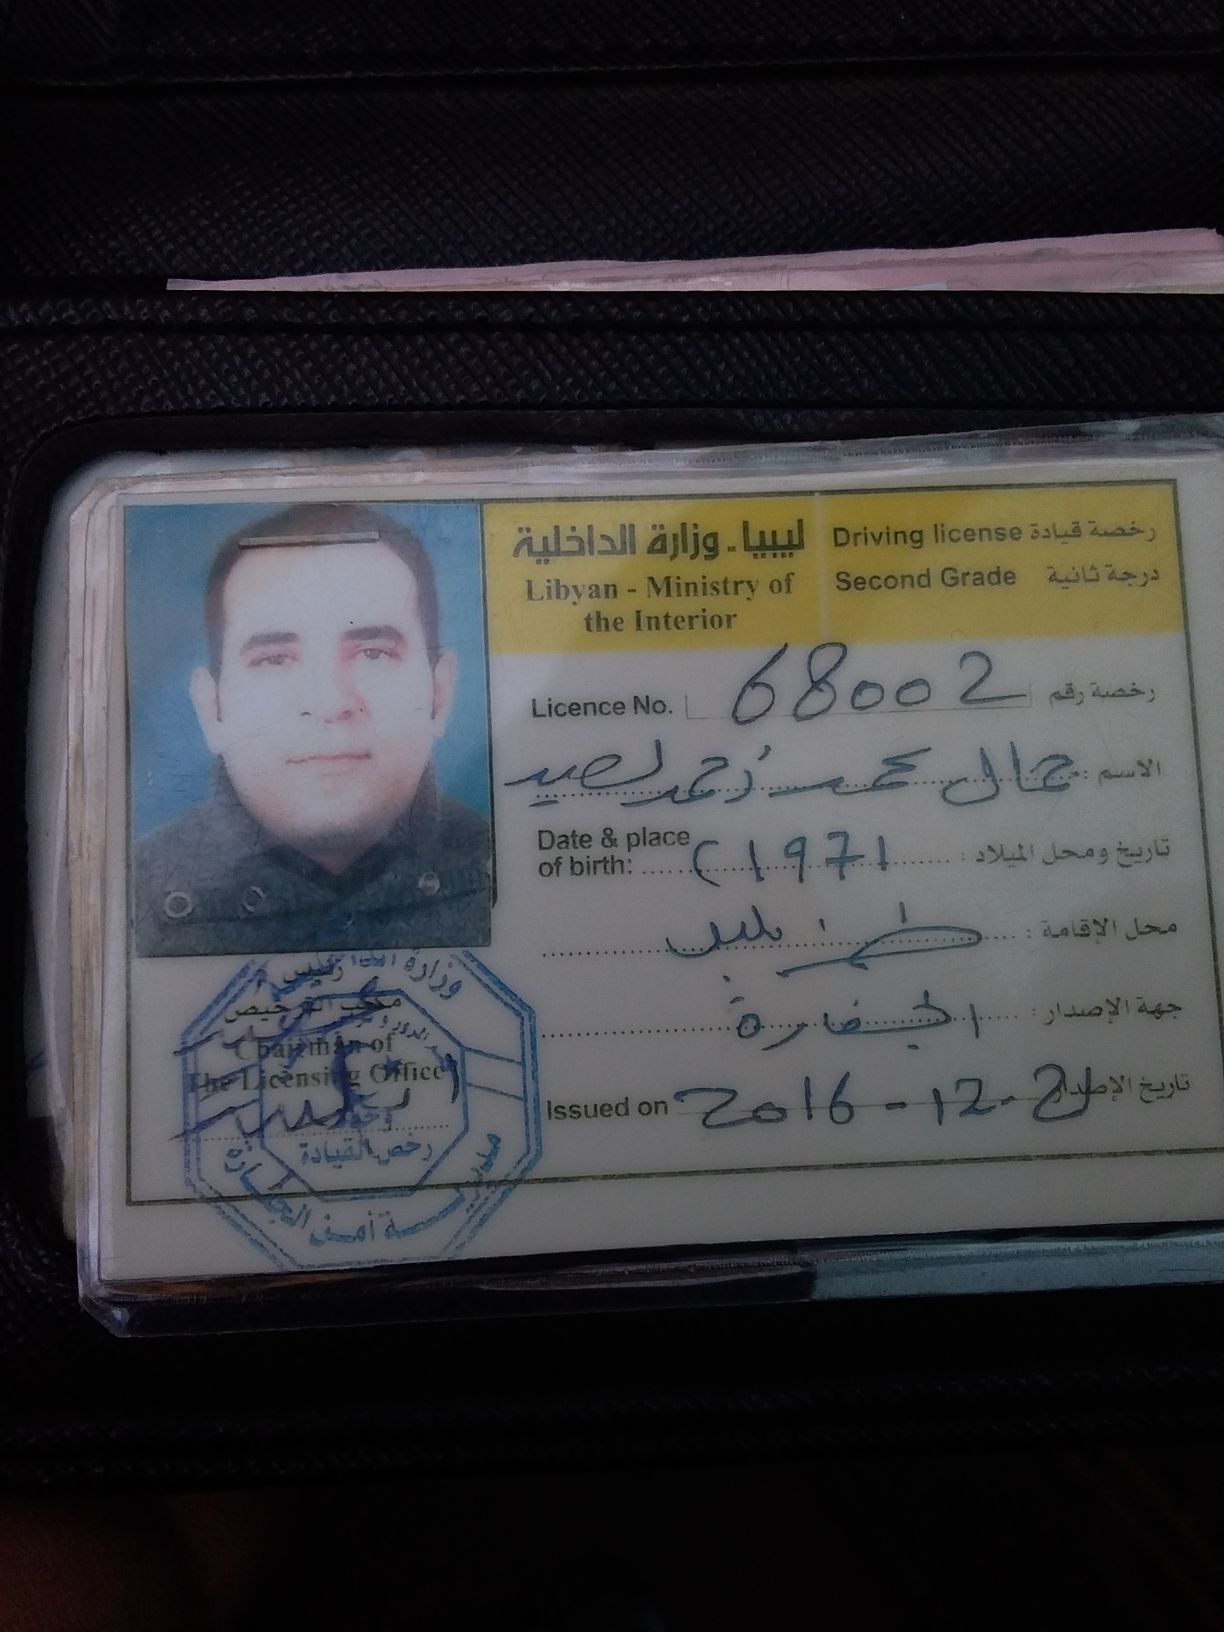 ليبيا - وزارة الداخلية
Libyan - Ministry of
the Interior
Driving license رخصة قيادة
Second Grade درجة ثانية
Licence No. 68002 رخصة رقم
الاسم : جمال محمد أحمد لصيد
Date & place
of birth: 1971 تاريخ ومحل الميلاد :
محل الإقامة : طرابلس
جهة الإصدار : الجفارة
Issued on 2016 - 12 - تاريخ الإصدار
رئيس
مكتب التراخيص
Chairman of
The Licensing Office
وزارة الداخلية
رخص القيادة